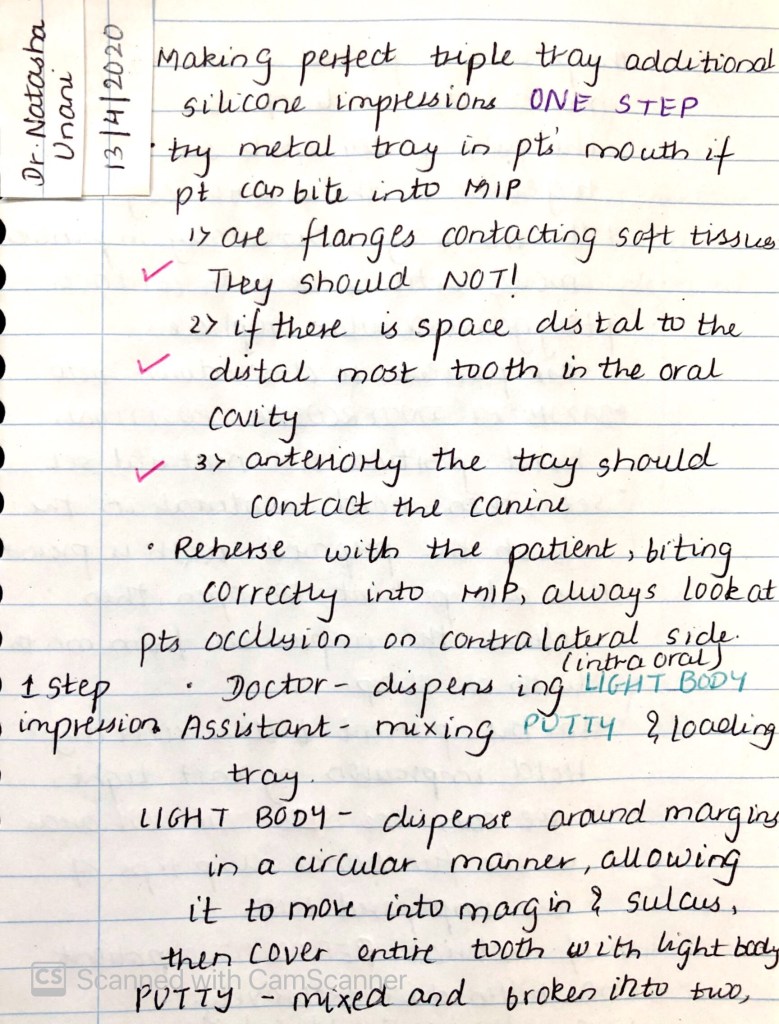 Dr. Natasha
Unani
13/4/2020
Making perfect triple tray additional
silicone impressions ONE STEP
· try metal tray in pts' mouth if
pt can bite into MIP
1> are flanges contacting soft tissue
✓ They should NOT!
2> if there is space distal to the
✓ distal most tooth in the oral
cavity
✓ 3> anteriorly the tray should
contact the canine
· Reherse with the patient, biting
correctly into MIP, always look at
pts occlusion on contralateral side.
(intra oral)
1 step · Doctor - dispensing LIGHT BODY
impression Assistant - mixing PUTTY & loading
tray.
LIGHT BODY - dispense around margins
in a circular manner, allowing
it to move into margin & sulcus,
then cover entire tooth with light body
CS Scanned with CamScanner
PUTTY - mixed and broken into two,